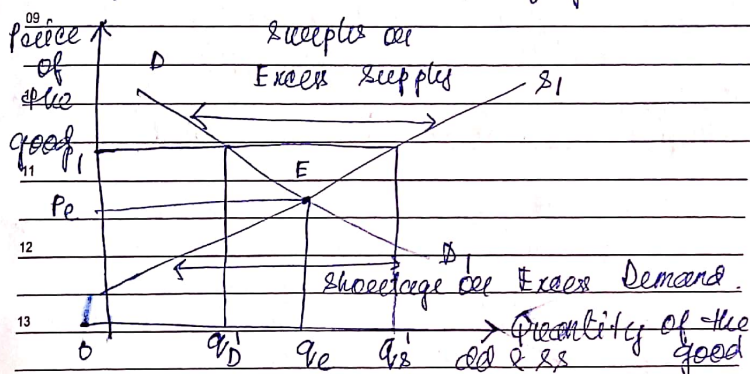 09
Price
of
the
good
Surplus or
Excess Supply
D
S₁
P₁
11
E
Pe
12
D₁
Shortage or Excess Demand.
13
0
q'D
qe
q's
Quantity of the
dd & ss good